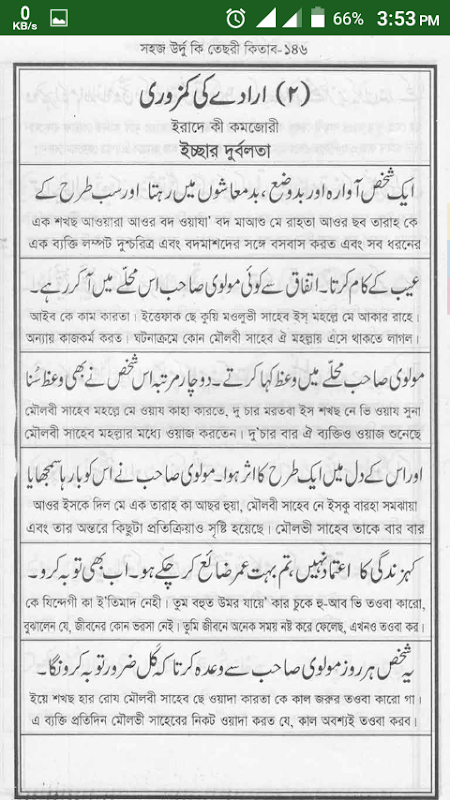 0 KB/s 66% 3:53 PM
সহজ উর্দু কি তেছরী কিতাব-১৪৬
(۲) ارادے کی کمزوری
ইরাদে কী কমজোরী
ইচ্ছার দুর্বলতা
ایک شخص آوارہ اور بدوضع، بدمعاشوں میں رہتا اور سب طرح کے
এক শখছ আওয়ারা আওর বদ ওয়াযা' বদ মাআশু মে রাহতা আওর ছব তারাহ কে
এক ব্যক্তি লম্পট দুশ্চরিত্র এবং বদমাশদের সঙ্গে বসবাস করত এবং সব ধরনের
عیب کے کام کرتا۔ اتفاق سے کوئی مولوی صاحب اس محلّے میں آ کر رہے۔
আইব কে কাম কারতা। ইত্তেফাক ছে কুয়ি মওলুভী সাহেব ইস্ মহল্লে মে আকার রাহে।
অন্যায় কাজকর্ম করত। ঘটনাক্রমে কোন মৌলবী সাহেব ঐ মহল্লায় এসে থাকতে লাগল।
مولوی صاحب محلّے میں وعظ کہا کرتے۔ دو چار مرتبہ اس شخص نے بھی وعظ سُنا
মৌলবী সাহেব মহল্লে মে ওয়ায কাহা কারতে, দু চার মরতবা ইস শখছ নে ভি ওয়ায সুনা
মৌলবী সাহেব মহল্লার মধ্যে ওয়াজ করতেন। দু'চার বার ঐ ব্যক্তিও ওয়াজ শুনেছে
اور اس کے دل میں ایک طرح کا اثر ہوا۔ مولوی صاحب نے اس کو بارہا سمجھایا
আওর ইসকে দিল মে এক তারাহ কা আছর হুয়া, মৌলবী সাহেব নে ইসকু বারহা সমঝায়া
এবং তার অন্তরে কিছুটা প্রতিক্রিয়াও সৃষ্টি হয়েছে। মৌলভী সাহেব তাকে বার বার
کہ زندگی کا اعتماد نہیں، تم بہت عمر ضائع کر چکے ہو۔ اب بھی توبہ کرو۔
কে যিন্দেগী কা ই'তিমাদ নেহী। তুম বহুত উমর যায়ে' কার চুকে হু-আব ভি তওবা কারো,
বুঝালেন যে, জীবনের কোন ভরসা নেই। তুমি জীবনে অনেক সময় নষ্ট করে ফেলেছ, এখনও তওবা কর।
یہ شخص ہر روز مولوی صاحب سے وعدہ کرتا کہ کَل ضرور توبہ کرونگا۔
ইয়ে শখছ হার রোয মৌলবী সাহেব ছে ওয়াদা কারতা কে কাল জরুর তওবা কারো গা।
এ ব্যক্তি প্রতিদিন মৌলভী সাহেবের নিকট ওয়াদা করত যে, কাল অবশ্যই তওবা করব।